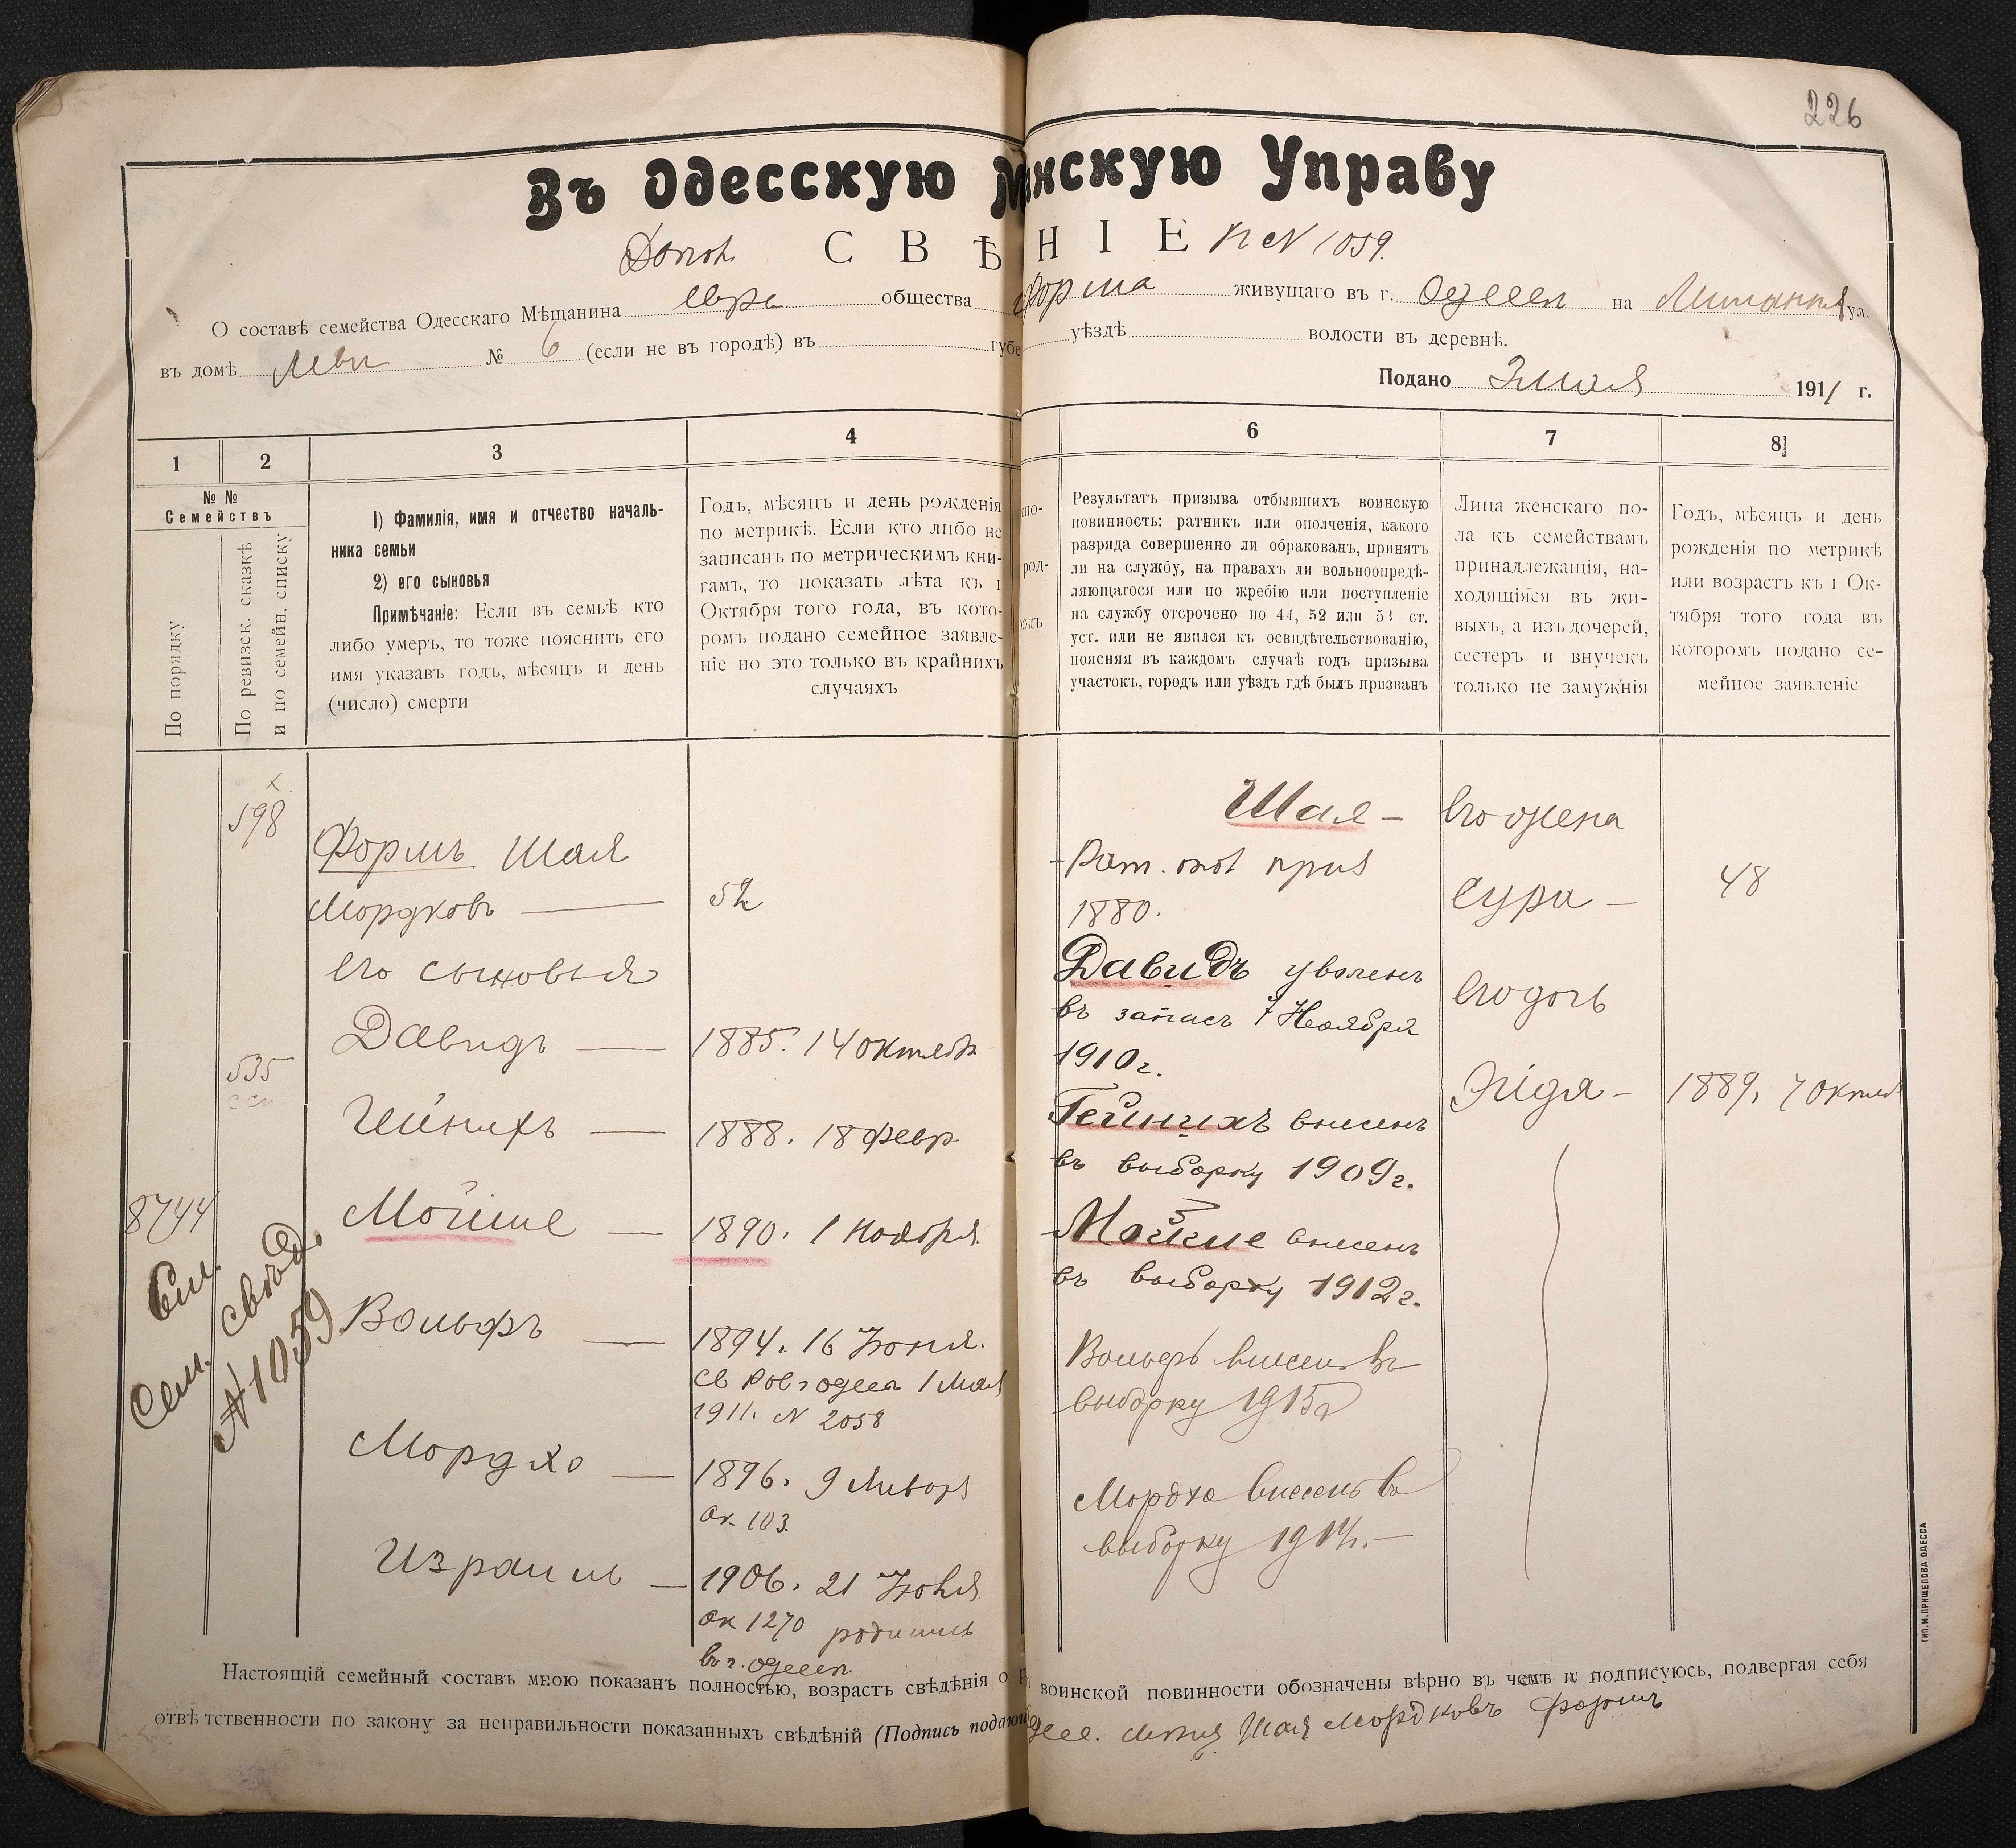 226
Въ Одесскую М нскую Управу
Допол. С В Ѣ Н І Е К № 1059.
О составѣ семейства Одесскаго Мѣщанина Евре общества Форма живущаго въ г. Одессѣ на ул.
въ домѣ № 6 (если не въ городѣ) въ губе уѣздѣ волости въ деревнѣ.
Подано 3 мая 1911 г.
1 2 3 4 6 7 8
№ №
Семействъ
По порядку
По ревизск. сказкѣ
и по семейн. списку
1) Фамилія, имя и отчество началь-
ника семьи
2) его сыновья
Примѣчаніе: Если въ семьѣ кто
либо умеръ, то тоже пояснить его
имя указавъ годъ, мѣсяцъ и день
(число) смерти
Годъ, мѣсяцъ и день рожденія
по метрикѣ. Если кто либо не
записанъ по метрическимъ кни-
гамъ, то показать лѣта къ 1
Октября того года, въ кото-
ромъ подано семейное заявле-
ніе но это только въ крайнихъ
случаяхъ
спо-
род-
одъ
Результатъ призыва отбывшихъ воинскую
повинность: ратникъ или ополченія, какого
разряда совершенно ли обракованъ, принятъ
ли на службу, на правахъ ли вольноопредѣ-
ляющагося или по жребію или поступленіе
на службу отсрочено по 44, 52 или 53 ст.
уст. или не явился къ освидѣтельствованію,
поясняя въ каждомъ случаѣ годъ призыва
участокъ, городъ или уѣздъ гдѣ былъ призванъ
Лица женскаго по-
ла къ семействамъ
принадлежащія, на-
ходящіяся въ жи-
выхъ, а изъ дочерей,
сестеръ и внучекъ
только не замужнія
Годъ, мѣсяцъ и день
рожденія по метрикѣ
или возрастъ къ 1 Ок-
тября того года въ
которомъ подано се-
мейное заявленіе
х
598
535
8744
См.
Сем. свѣд.
№ 1059
Формъ Шая
Мордковъ — 52
его сыновья
Давидъ — 1885. 14 октября
Гейнихъ — 1888. 18 февр.
Мойше — 1890. 1 Ноября
Вольфъ — 1894. 16 Іюня.
св Рав г одессы 1 Мая
1911. № 2058
Мордко — 1896. 9 Января
ак 103.
Израиль — 1906. 21 Іюня
ак 1270 родились
въ г. одессѣ.
Шая —
Рат. опол приз
1880.
Давидъ уволенъ
въ запасъ 7 Ноября
1910 г.
Гейнихъ внесенъ
въ выборку 1909 г.
Мойше внесенъ
въ выборку 1912 г.
Вольфъ внесенъ въ
выборку 1915 г
Мордко внесенъ въ
выборку 1917 г. —
его жена
Сура — 48
его дочь
Эйдя — 1889. 7 октяб
Настоящій семейный составъ мною показанъ полностью, возрастъ свѣдѣнія о воинской повинности обозначены вѣрно въ чемъ и подписуюсь, подвергая себя
отвѣтственности по закону за неправильности показанныхъ свѣдѣній (Подпись подающ Одес. Шая Мордковъ Формъ
ТИП. М. ПРИЩЕПОВА ОДЕССА